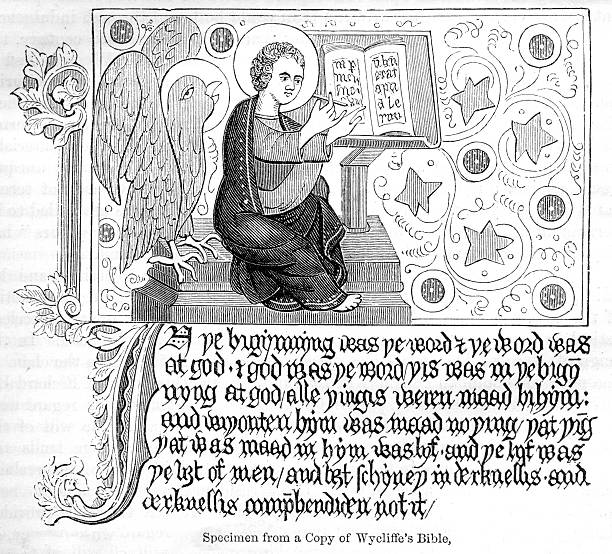 erat
In ye bigynnyng was ye word & ye word was
at god · & god was ye word yis was in ye bigyn̄
nyng at god/ alle yingis weren maad bi hym:
and wiyouten hym was maad no ying/ yat yīg
yat was maad in hym was lyf · and ye lyf was
ye lyȝt of men/ and lyȝt schyney in derknessis · and
derknessis comp̄hendiden not it/
Specimen from a Copy of Wycliffe's Bible,